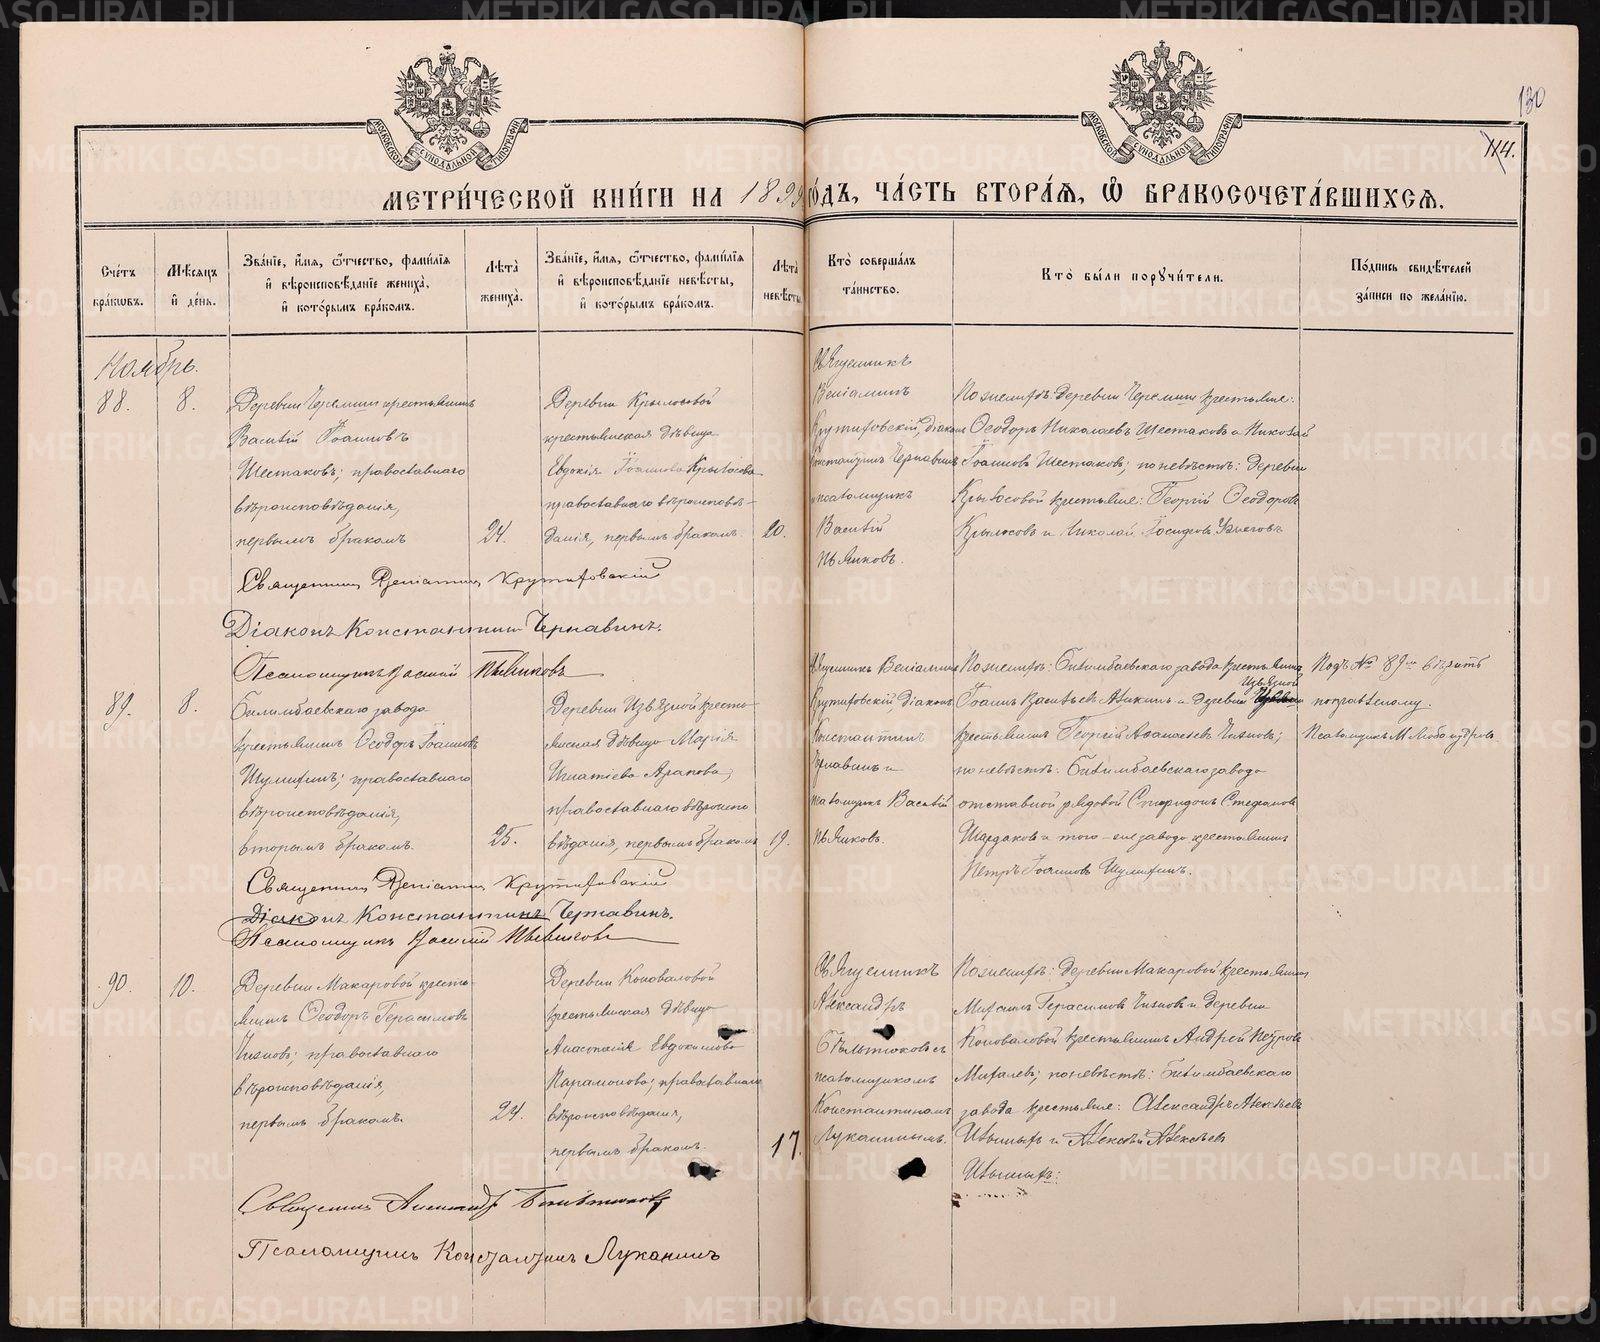 130
114.
МЕТРИ́ЧЕСКОЙ КНИ́ГИ НА 1899 ГО́ДЪ, ЧА́СТЬ ВТОРА́Я, Ѡ БРАКОСОЧЕТА́ВШИХСЯ.
МОСКОВСКОЙ СѴНОДАЛЬНОЙ ТИПОГРАФІИ
МОСКОВСКОЙ СѴНОДАЛЬНОЙ ТИПОГРАФІИ
Сче́тъ бра́кѡвъ.
Мѣ́сяцъ и҆ де́нь.
Зва́нїе, и҆́мя, ѻ҆́тчество, фами́лїя и҆ вѣроисповѣ́данїе жениха̀, и҆ кото́рымъ бра́комъ.
Лѣ́та̀ жениха̀.
Зва́нїе, и҆́мя, ѻ҆́тчество, фами́лїя и҆ вѣроисповѣ́данїе невѣ́сты, и҆ кото́рымъ бра́комъ.
Лѣ́та̀ невѣ́сты
Кто̀ соверша́лъ та́инство.
Кто̀ бы́ли порꙋчи́тели.
По́дпись свидѣ́телей за́писи по жела́нїю.
Ноябрь.
88.
8.
Деревни Черемши крестьянинъ
Василій Іоанновъ
Шестаковъ; православнаго
вѣроисповѣданія,
первымъ бракомъ
24.
Деревни Крылосовой
крестьянская дѣвица
Евдокія Іоаннова Крылосова
православнаго вѣроисповѣ-
данія, первымъ бракомъ.
20.
Священникъ
Веніаминъ
Крутиховскій, діаконъ
Константинъ Чернавинъ
псаломщикъ
Василій
Пьянковъ.
По женихѣ: деревни Черемши крестьяне:
Ѳеодоръ Николаевъ Шестаковъ и Николай
Іоанновъ Шестаковъ; по невѣстѣ: деревни
Крылосовой крестьяне: Георгій Ѳеодоровъ
Крылосовъ и Николай Іосифовъ
Священникъ Веніаминъ Крутиховскій
Діаконъ Константинъ Чернавинъ.
Псаломщикъ Василій Пьянковъ
89.
8.
Билимбаевскаго завода
крестьянинъ Ѳеодоръ Іоанновъ
Шулятинъ; православнаго
вѣроисповѣданія,
вторымъ бракомъ.
25.
Деревни Извѣзной кресть-
янская дѣвица Марія
Игнатіева Арапова,
православнаго вѣроиспо-
вѣданія, первымъ бракомъ
19.
Священникъ Веніаминъ
Крутиховскій, діаконъ
Константинъ
Чернавинъ и
псаломщикъ Василій
Пьянковъ.
По женихѣ: Билимбаевскаго завода крестьянинъ
Іоаннъ Васильевъ Аликинъ и деревни Извѣзной
крестьянинъ Георгій Аѳанасьевъ Чижовъ;
по невѣстѣ: Билимбаевскаго завода
отставной рядовой Спиридонъ Стефановъ
Шардаковъ и того-же завода крестьянинъ
Петръ Іоанновъ Шулятинъ.
Подъ № 89-мъ вѣрить
поправленному.
Псаломщикъ М. Любомудровъ
Священникъ Веніаминъ Крутиховскій
Діаконъ Константинъ Чернавинъ.
Псаломщикъ Василій Пьянковъ
90.
10.
Деревни Макаровой кресть-
янинъ Ѳеодоръ Герасимовъ
Чижовъ; православнаго
вѣроисповѣданія,
первымъ бракомъ.
24.
Деревни Коноваловой
крестьянская дѣвица
Анастасія Евдокимова
Парамонова; православнаго
вѣроисповѣданія,
первымъ бракомъ.
17.
Священникъ
Александръ
Бѣльтюковъ съ
псаломщикомъ
Константиномъ
Луканинымъ.
По женихѣ: деревни Макаровой крестьянинъ
Максимъ Герасимовъ Чижовъ и деревни
Коноваловой крестьянинъ Андрей Петровъ
Михалевъ; по невѣстѣ: Билимбаевскаго
завода крестьяне: Александръ Алексѣевъ
Ивыныхъ и Алексѣй Алексѣевъ
Ивыныхъ.
Священникъ Александръ Бѣльтюковъ
Псаломщикъ Константинъ Луканинъ
METRIKI.GASO-URAL.RU